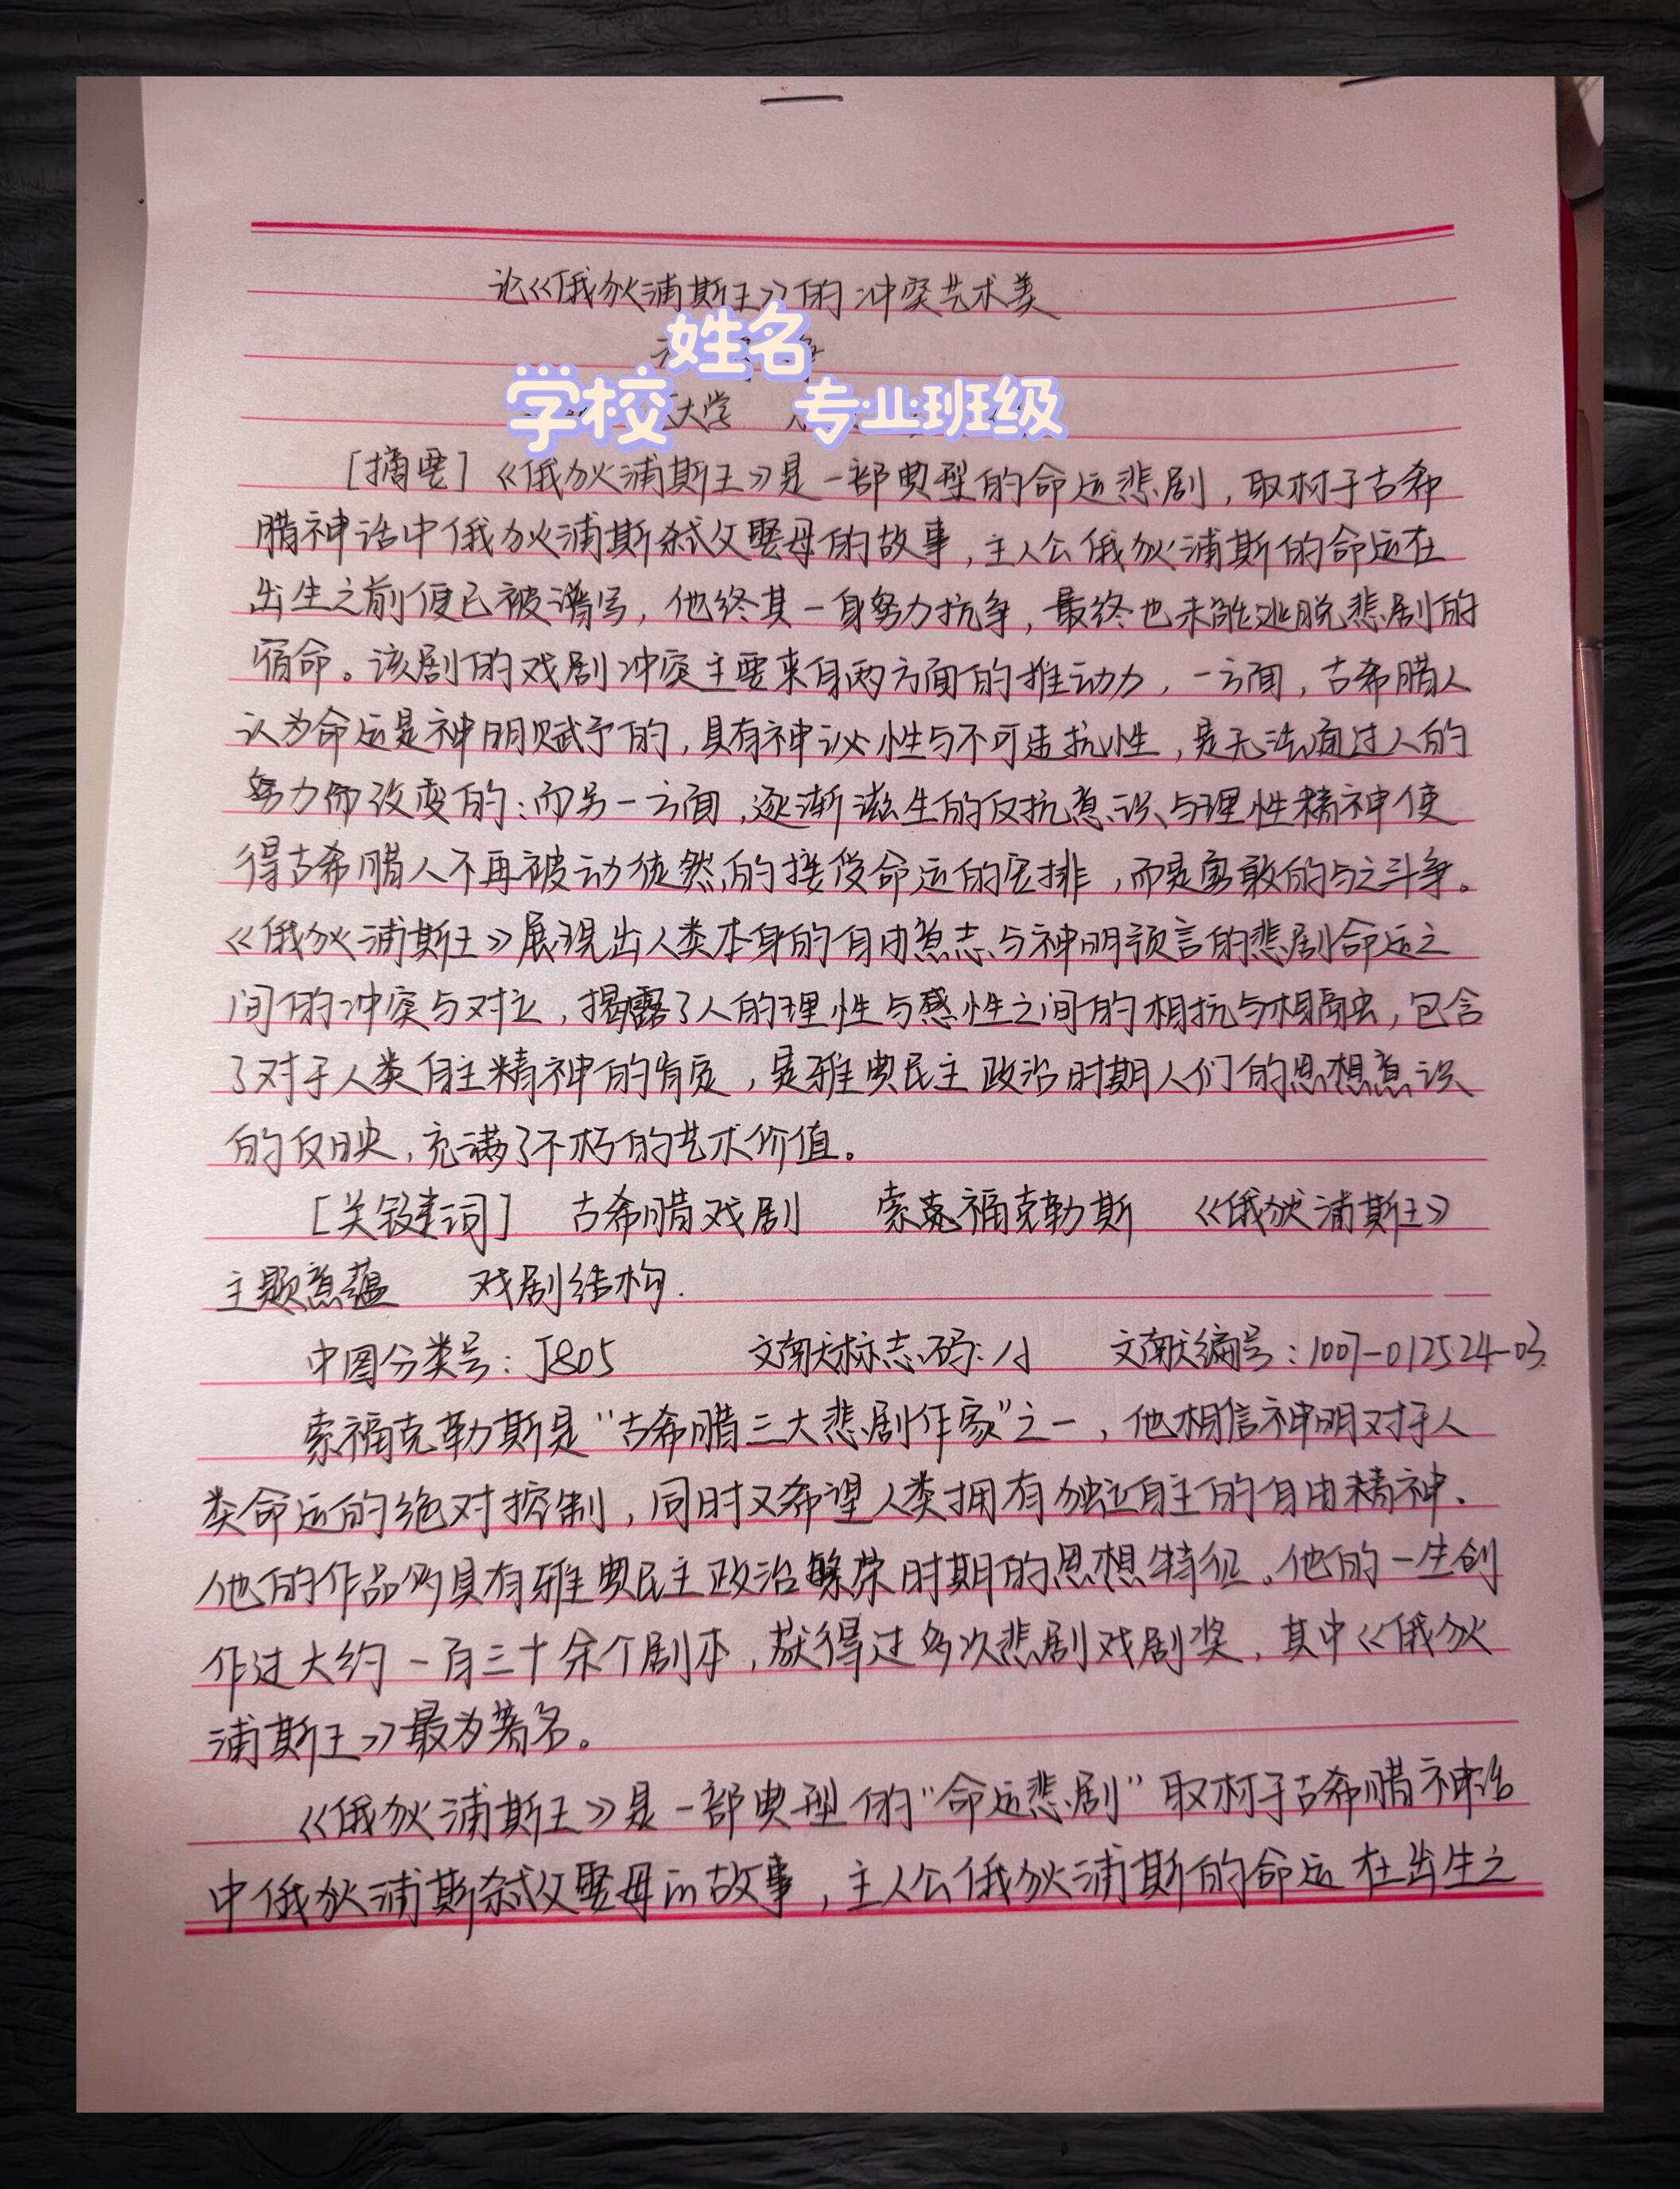 论《俄狄浦斯王》的冲突艺术美
姓名
学校 大学 专业班级
[摘要]《俄狄浦斯王》是一部典型的命运悲剧，取材于古希
腊神话中俄狄浦斯弑父娶母的故事，主人公俄狄浦斯的命运在
出生之前便已被谱写，他终其一身努力抗争，最终也未能逃脱悲剧的
宿命。该剧的戏剧冲突主要来自两方面的推动力，一方面，古希腊人
认为命运是神明赋予的，具有神议性与不可违抗性，是无法通过人的
努力而改变的；而另一方面，逐渐滋生的反抗意识与理性精神使
得古希腊人不再被动徒然的接受命运的安排，而是勇敢的与之斗争。
《俄狄浦斯王》展现出人类本身的自由意志与神明预言的悲剧命运之
间的冲突与对立，揭露了人的理性与感性之间的相抗与相融，包含
了对于人类自主精神的肯定，是雅典民主政治时期人们的思想意识
的反映，充满了不朽的艺术价值。
[关键词] 古希腊戏剧 索福克勒斯 《俄狄浦斯王》
主题意蕴 戏剧结构.
中图分类号：J805 文献标志码：A 文献编号：1007-012524-03
索福克勒斯是“古希腊三大悲剧作家”之一，他相信神明对于人
类命运的绝对控制，同时又希望人类拥有独立自主的自由精神.
他的作品均具有雅典民主政治繁荣时期的思想特征。他的一生创
作过大约一百三十余个剧本，获得过多次悲剧戏剧奖，其中《俄狄
浦斯王》最为著名。
《俄狄浦斯王》是一部典型的“命运悲剧”取材于古希腊神话
中俄狄浦斯弑父娶母的故事，主人公俄狄浦斯的命运在出生之